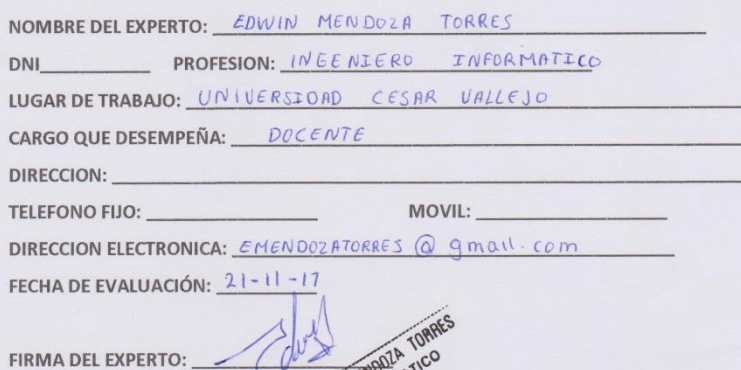 NOMBRE DEL EXPERTO: EDWIN MENDOZA TORRES
DNI PROFESION: INGENIERO INFORMATICO
LUGAR DE TRABAJO: UNIVERSIDAD CESAR VALLEJO
CARGO QUE DESEMPEÑA: DOCENTE
DIRECCION:
TELEFONO FIJO: MOVIL:
DIRECCION ELECTRONICA: EMENDOZATORRES @ gmail.com
FECHA DE EVALUACIÓN: 21-11-17
FIRMA DEL EXPERTO:
TORRES